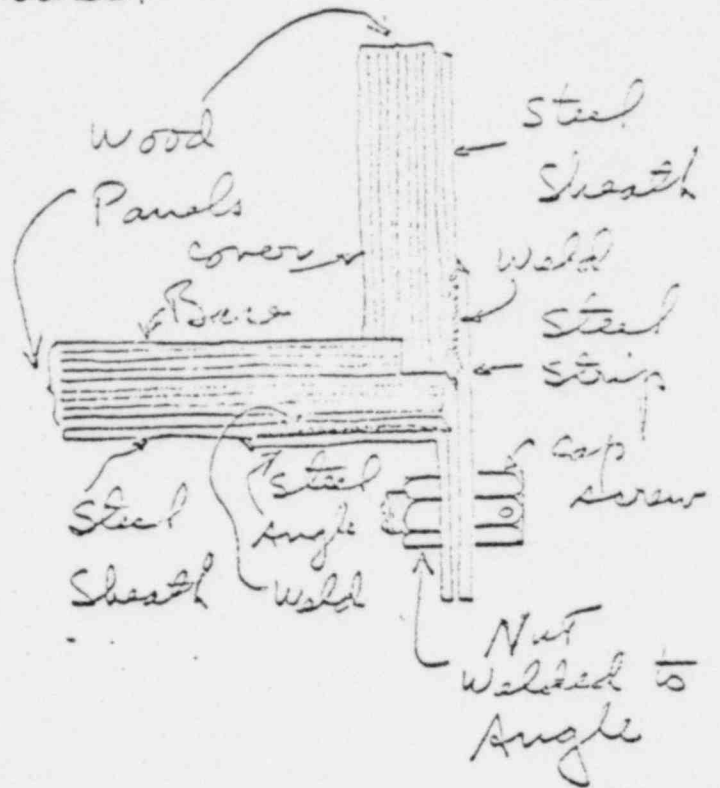 Wood
Panels
cover
Base
Steel
Sheath
Weld
Steel
Strip
Cap
screw
Steel
Sheath
Steel
Angle
Weld
Nut
Welded to
Angle